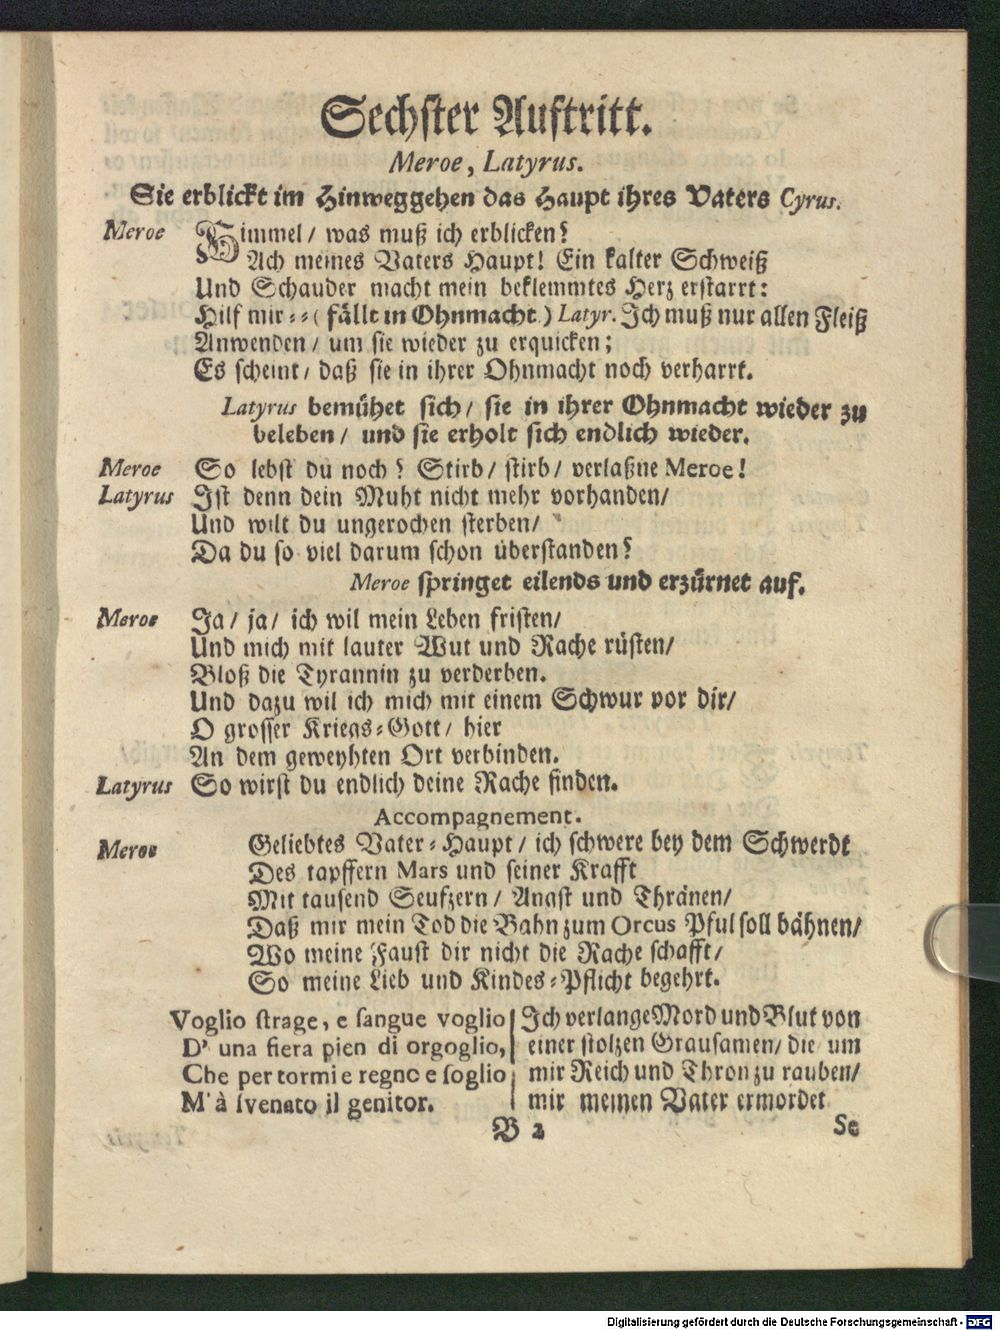 Sechster Auftritt.
Meroe, Latyrus.
Sie erblickt im Hinweggehen das Haupt ihres Vaters Cyrus.
Meroe Himmel/ was muß ich erblicken?
Ach meines Vaters Haupt! Ein kalter Schweiß
Und Schauder macht mein beklemmtes Herz erstarrt:
Hilf mir⸗⸗( fällt in Ohnmacht.) Latyr. Ich muß nur allen Fleiß
Anwenden/ um sie wieder zu erquicken;
Es scheint/ daß sie in ihrer Ohnmacht noch verharrt.
Latyrus bemühet sich/ sie in ihrer Ohnmacht wieder zu
beleben/ und sie erholt sich endlich wieder.
Meroe So lebst du noch? Stirb/ stirb/ verlaßne Meroe!
Latyrus Ist denn dein Muht nicht mehr vorhanden/
Und wilt du ungerochen sterben/
Da du so viel darum schon überstanden?
Meroe springet eilends und erzürnet auf.
Meroe Ja/ ja/ ich wil mein Leben fristen/
Und mich mit lauter Wut und Rache rüsten/
Bloß die Tyrannin zu verderben.
Und dazu wil ich mich mit einem Schwur vor dir/
O grosser Kriegs⸗Gott/ hier
An dem geweyhten Ort verbinden.
Latyrus So wirst du endlich deine Rache finden.
Accompagnement.
Meroe Geliebtes Vater⸗Haupt/ ich schwere bey dem Schwerdt
Des tapffern Mars und seiner Krafft
Mit tausend Seufzern/ Angst und Thränen/
Daß mir mein Tod die Bahn zum Orcus Pful soll bähnen/
Wo meine Faust dir nicht die Rache schafft/
So meine Lieb und Kindes⸗Pflicht begehrt.
Voglio strage, e sangue voglio
D' una fiera pien di orgoglio,
Che per tormi e regno e soglio
M'à svenato il genitor.
Ich verlange Mord und Blut von
einer stolzen Grausamen/ die um
mir Reich und Thron zu rauben/
mir meinen Vater ermordet
B 2
Se
Digitalisierung gefördert durch die Deutsche Forschungsgemeinschaft - DFG